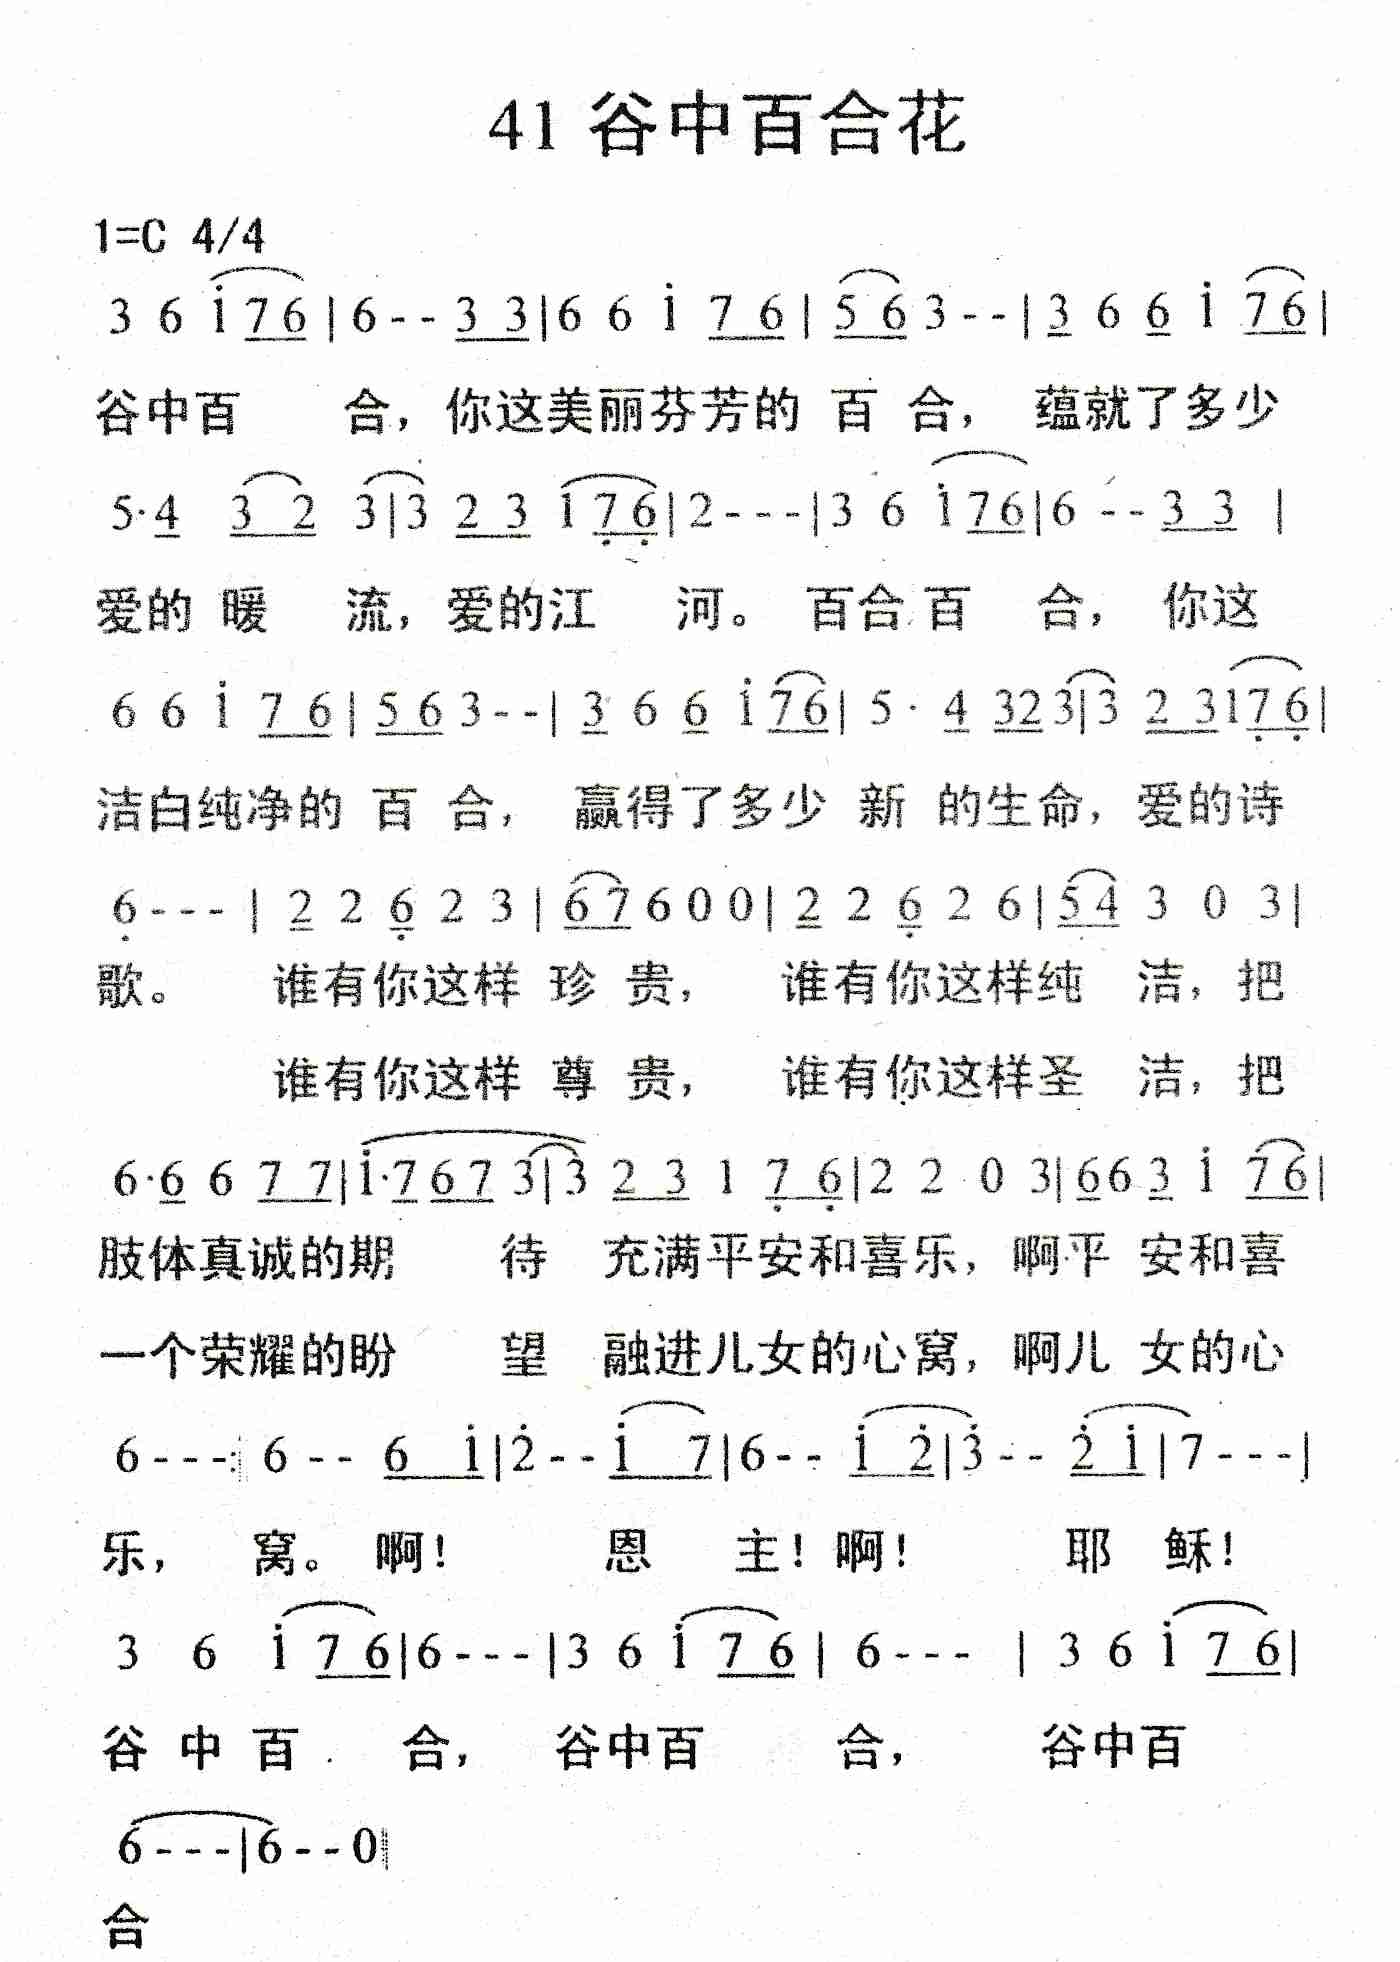 41 谷中百合花
1=C 4/4
3 6 i 7 6 | 6 - - 3 3 | 6 6 i 7 6 | 5 6 3 - - | 3 6 6 i 7 6 |
谷中百 合，你这美丽芬芳的 百 合， 蕴就了多少
5· 4 3 2 3 | 3 2 3 1 7 6 | 2 - - - | 3 6 i 7 6 | 6 - - 3 3 |
爱的 暖 流，爱的江 河。 百合百 合， 你这
6 6 i 7 6 | 5 6 3 - - | 3 6 6 i 7 6 | 5 · 4 3 2 3 | 3 2 3 1 7 6 |
洁白纯净的 百 合， 赢得了多少 新 的生命，爱的诗
6 - - - | 2 2 6 2 3 | 6 7 6 0 0 | 2 2 6 2 6 | 5 4 3 0 3 |
歌。 谁有你这样 珍 贵， 谁有你这样纯 洁，把
谁有你这样 尊 贵， 谁有你这样圣 洁，把
6 · 6 6 7 7 | i · 7 6 7 3 | 3 2 3 1 7 6 | 2 2 0 3 | 6 6 3 i 7 6 |
肢体真诚的期 待 充满平安和喜乐，啊平 安和喜
一个荣耀的盼 望 融进儿女的心窝，啊儿 女的心
6 - - - :| 6 - - 6 i | 2 - - i 7 | 6 - - i 2 | 3 - - 2 i | 7 - - - |
乐， 窝。 啊！ 恩 主！啊！ 耶 稣！
3 6 i 7 6 | 6 - - - | 3 6 i 7 6 | 6 - - - | 3 6 i 7 6 |
谷 中 百 合， 谷中百 合， 谷中百
6 - - - | 6 - - 0 ‖
合